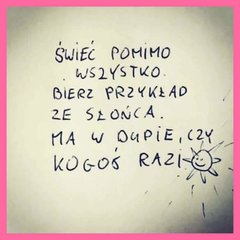 ŚWIEĆ POMIMO
WSZYSTKO.
BIERZ PRZYKŁAD
ZE SŁOŃCA.
MA W DUPIE, CZY
KOGOŚ RAZI